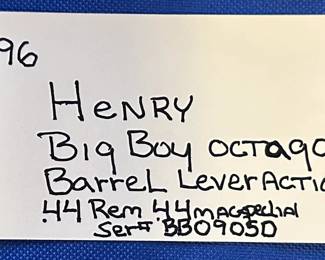 96
HENRY
Big Boy OCTAGO
BarreL LeverActio
.44 Rem .44 MAGSPECIAL
Ser# BB0905D